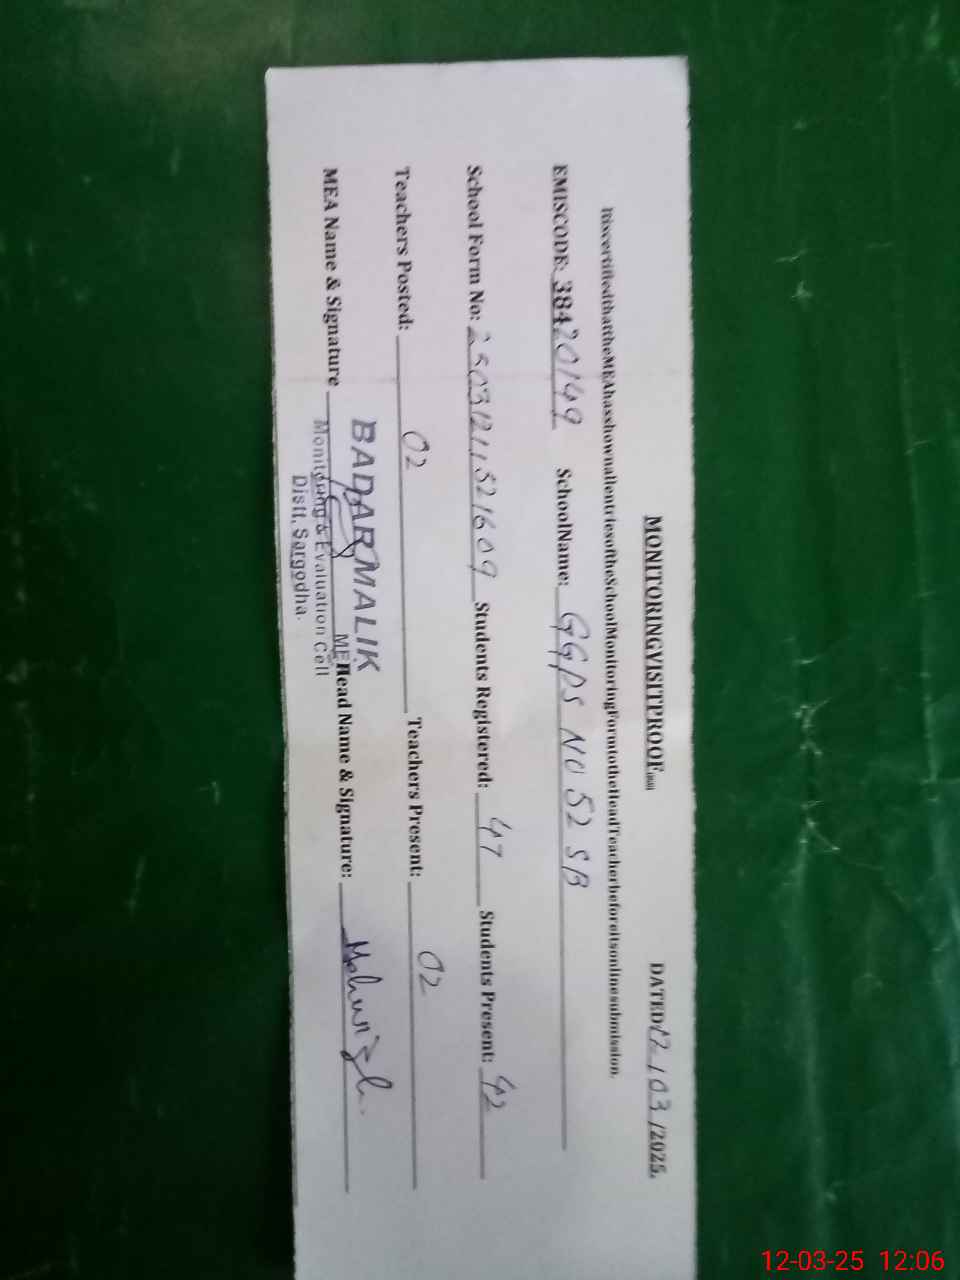 MONITORINGVISITPROOF(BSB) DATED:12/03/2025.
ItiscertifiedthattheMEAhasshownallentriesoftheSchoolMonitoringFormtotheHeadTeacherbeforeitsonlinesubmission.
EMISCODE: 38420149 SchoolName: GGPS NO 52 SB
School Form No: 2503121152 1609 Students Registered: 47 Students Present: 42
Teachers Posted: 02 Teachers Present: 02
MEA Name & Signature BADAR MALIK Head Name & Signature: Mehwish
MEA
Monitoring & Evaluation Cell
Distt. Sargodha.
12-03-25 12:06